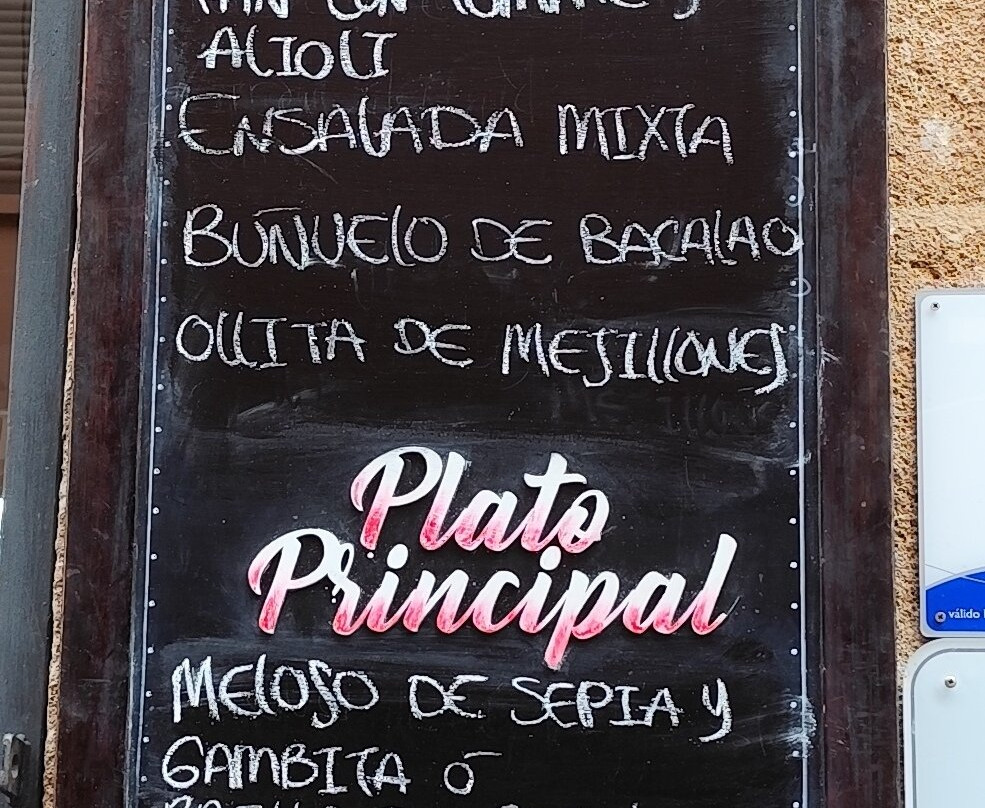 ALIOLI
ENSALADA MIXTA
BUÑUELO DE BACALAO
OLLITA DE MEJILLONES
Plato
Principal
MELOSO DE SEPIA Y
GAMBITA Ó
válido